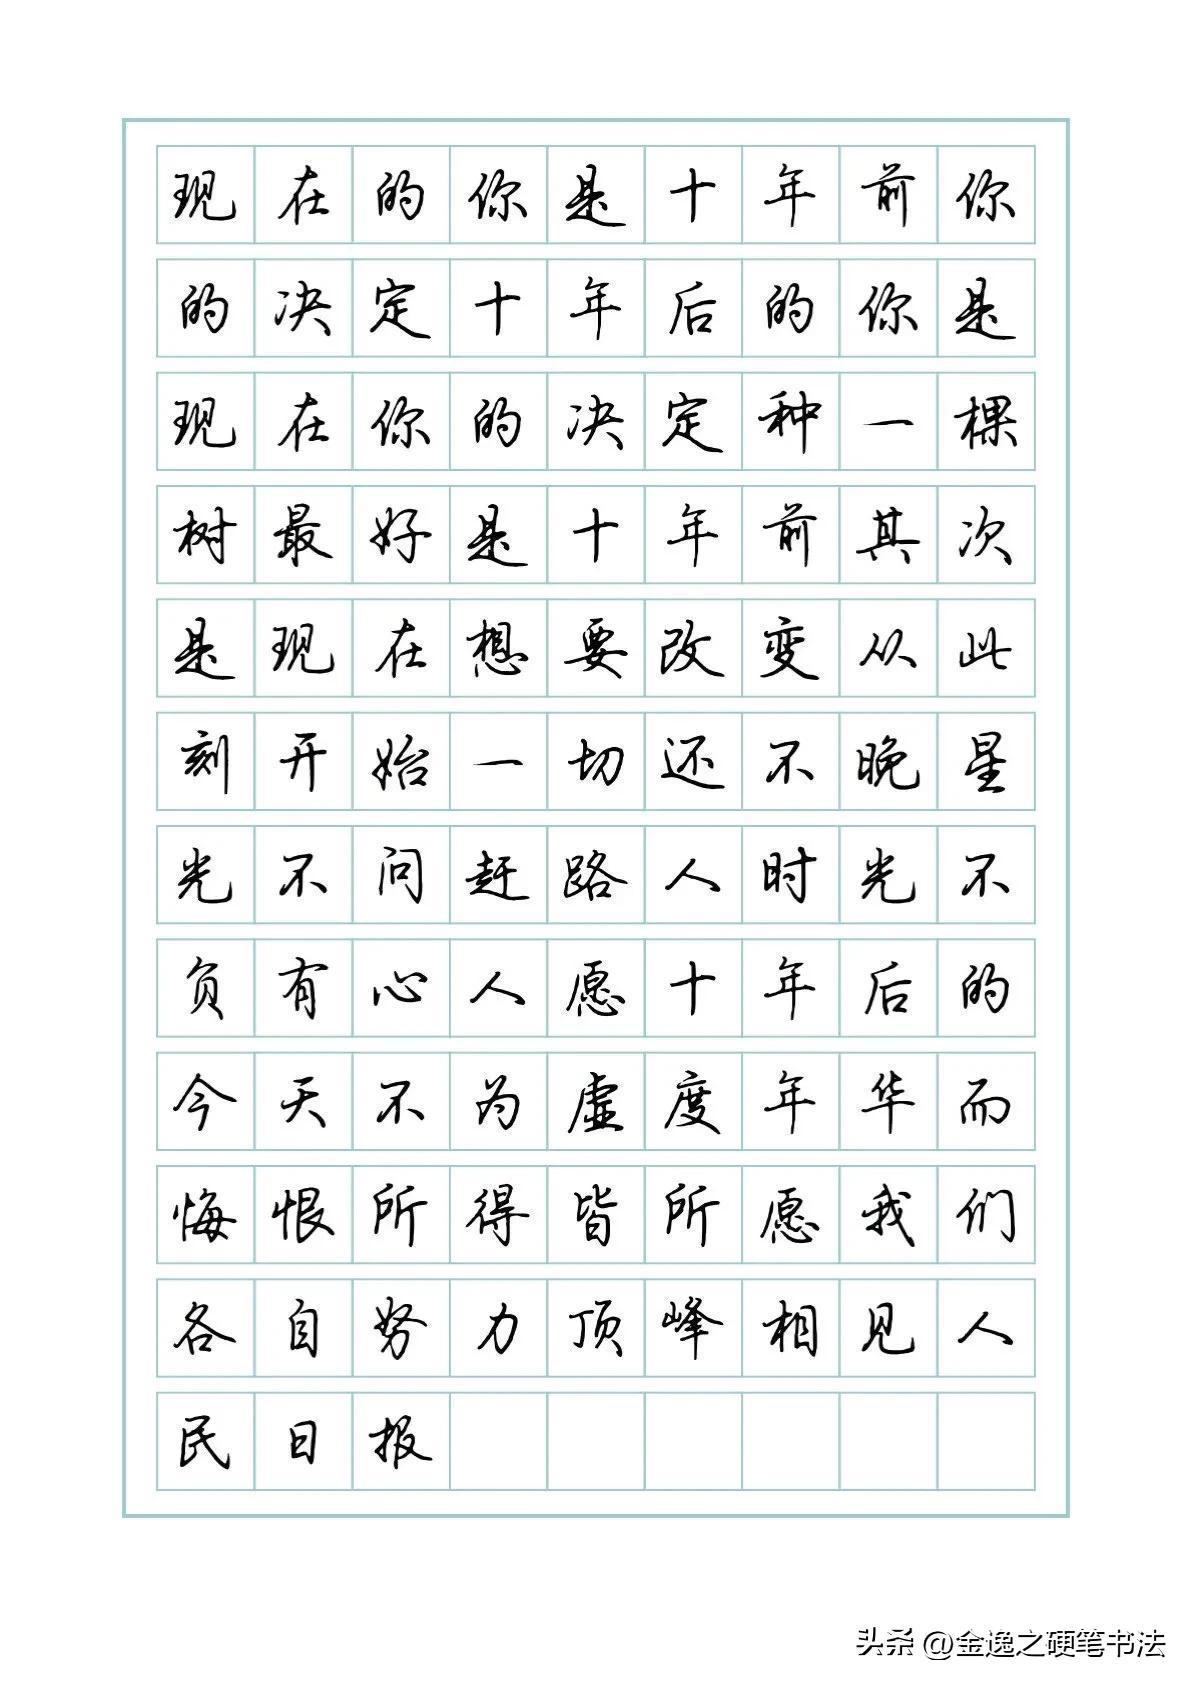 现在的你是十年前你
的决定十年后的你是
现在你的决定种一棵
树最好是十年前其次
是现在想要改变从此
刻开始一切还不晚星
光不问赶路人时光不
负有心人愿十年后的
今天不为虚度年华而
悔恨所得皆所愿我们
各自努力顶峰相见人
民日报
头条 @金逸之硬笔书法